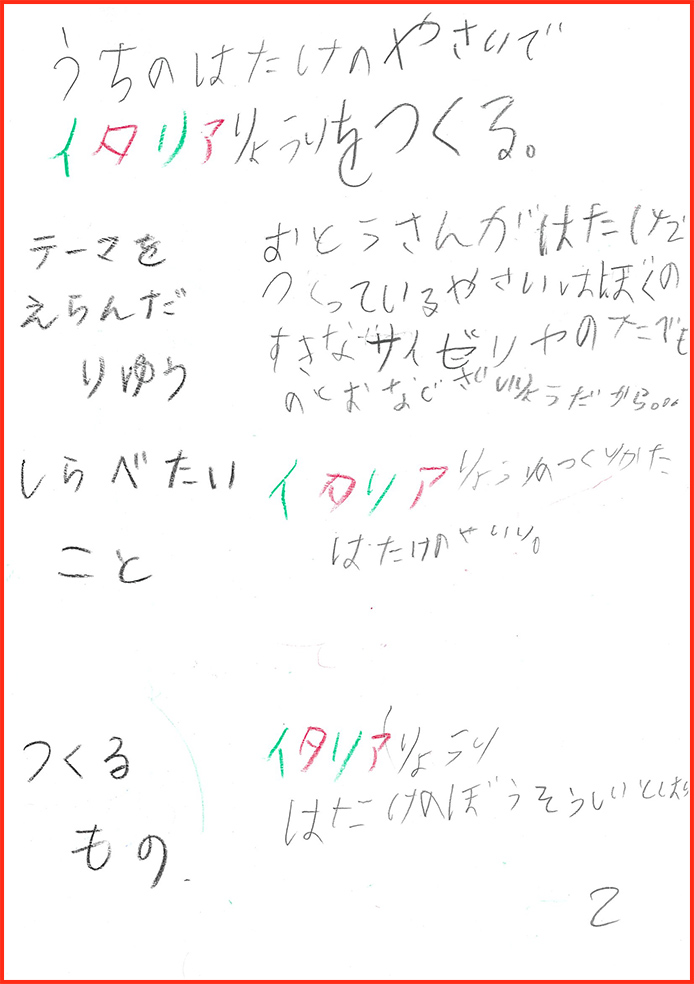 うちのはたけのやさいで
イタリアりょうりをつくる。
テーマを
えらんだ
りゆう
おとうさんがはたけで
つくっているやさいはぼくの
すきなサイゼリヤの
のとおなじざいりょうだから。。。
しらべたい
こと
イタリアりょうりのつくりかた
はたけのやさい。
つくる
もの
イタリアりょうり
はたけのぼうそうしいと
2